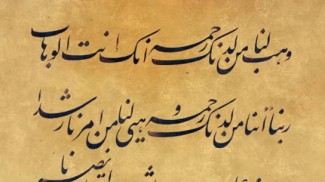 وهب لنا من لدنک رحمه انک انت الوهاب
ربنا آتنا من لدنک رحمه و هیئ لنا من امرنا رشدا